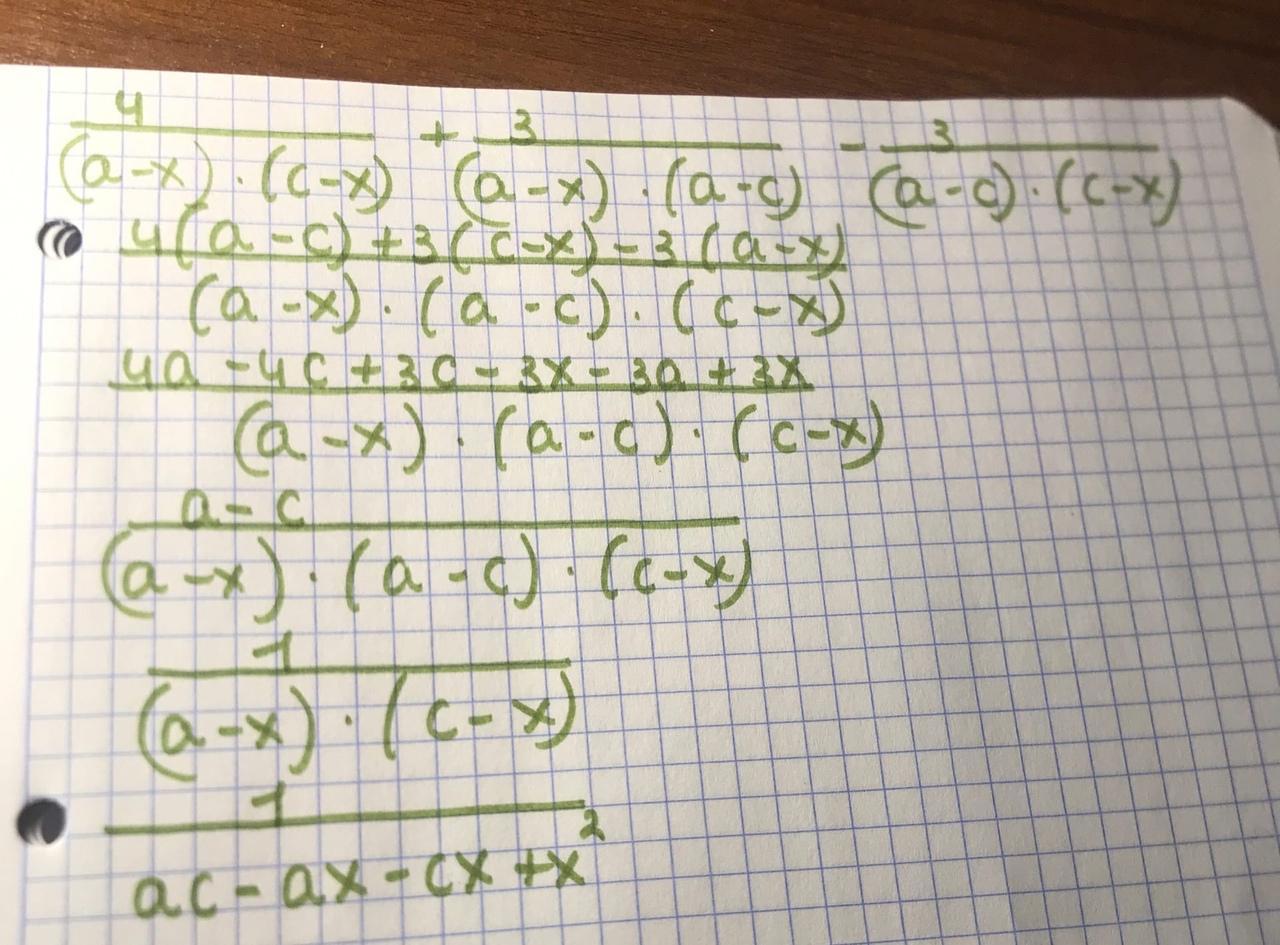 4/((a-x)·(c-x)) + 3/((a-x)·(a-c)) - 3/((a-c)·(c-x))
(4(a-c)+3(c-x)-3(a-x))/((a-x)·(a-c)·(c-x))
(4a-4c+3c-3x-3a+3x)/((a-x)·(a-c)·(c-x))
(a-c)/((a-x)·(a-c)·(c-x))
1/((a-x)·(c-x))
1/(ac-ax-cx+x²)